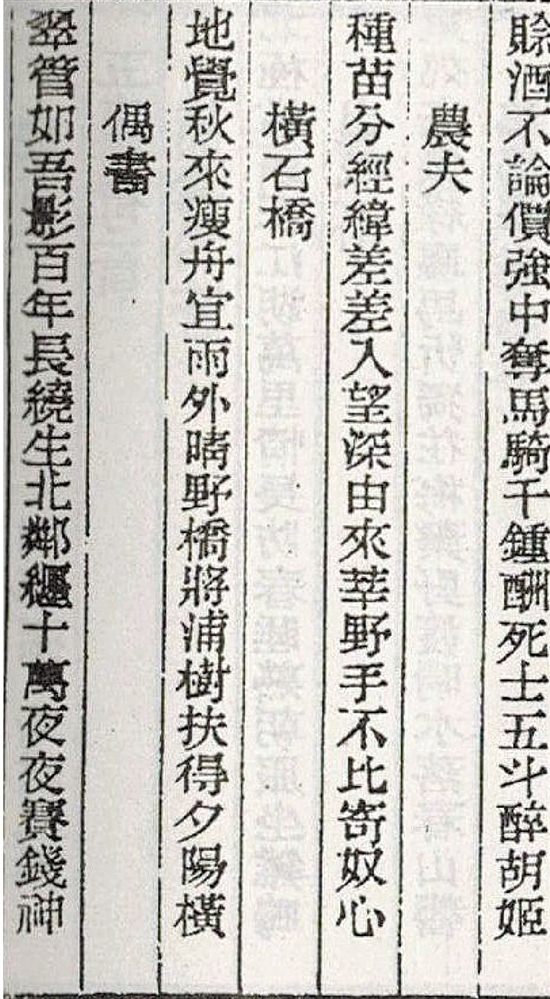 賒酒不論價強中奪馬騎千鍾酬死士五斗醉胡姬
農夫
種苗分經緯差差入望深由來莘野手不比寄奴心
橫石橋
地覺秋來瘦舟宜雨外晴野橋將浦樹扶得夕陽橫
偶書
翠管如吾影百年長繞生北鄰纏十萬夜夜賽錢神